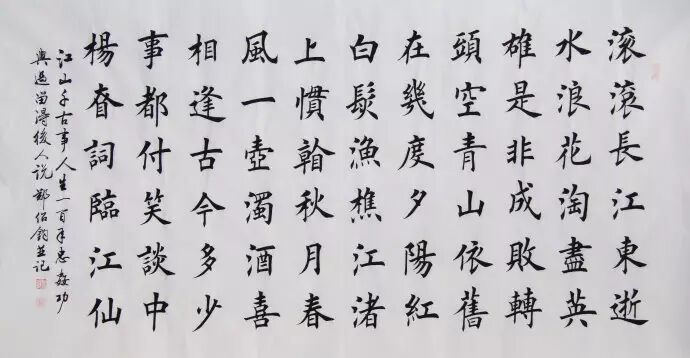 滚滚長江東逝
水浪花淘盡英
雄是非成敗轉
頭空青山依舊
在幾度夕陽紅
白髮漁樵江渚
上慣看秋月春
風一壺濁酒喜
相逢古今多少
事都付笑談中
楊昚詞臨江仙
江山千古事人生一百年忠姦功
與過留得後人说 伯 並记